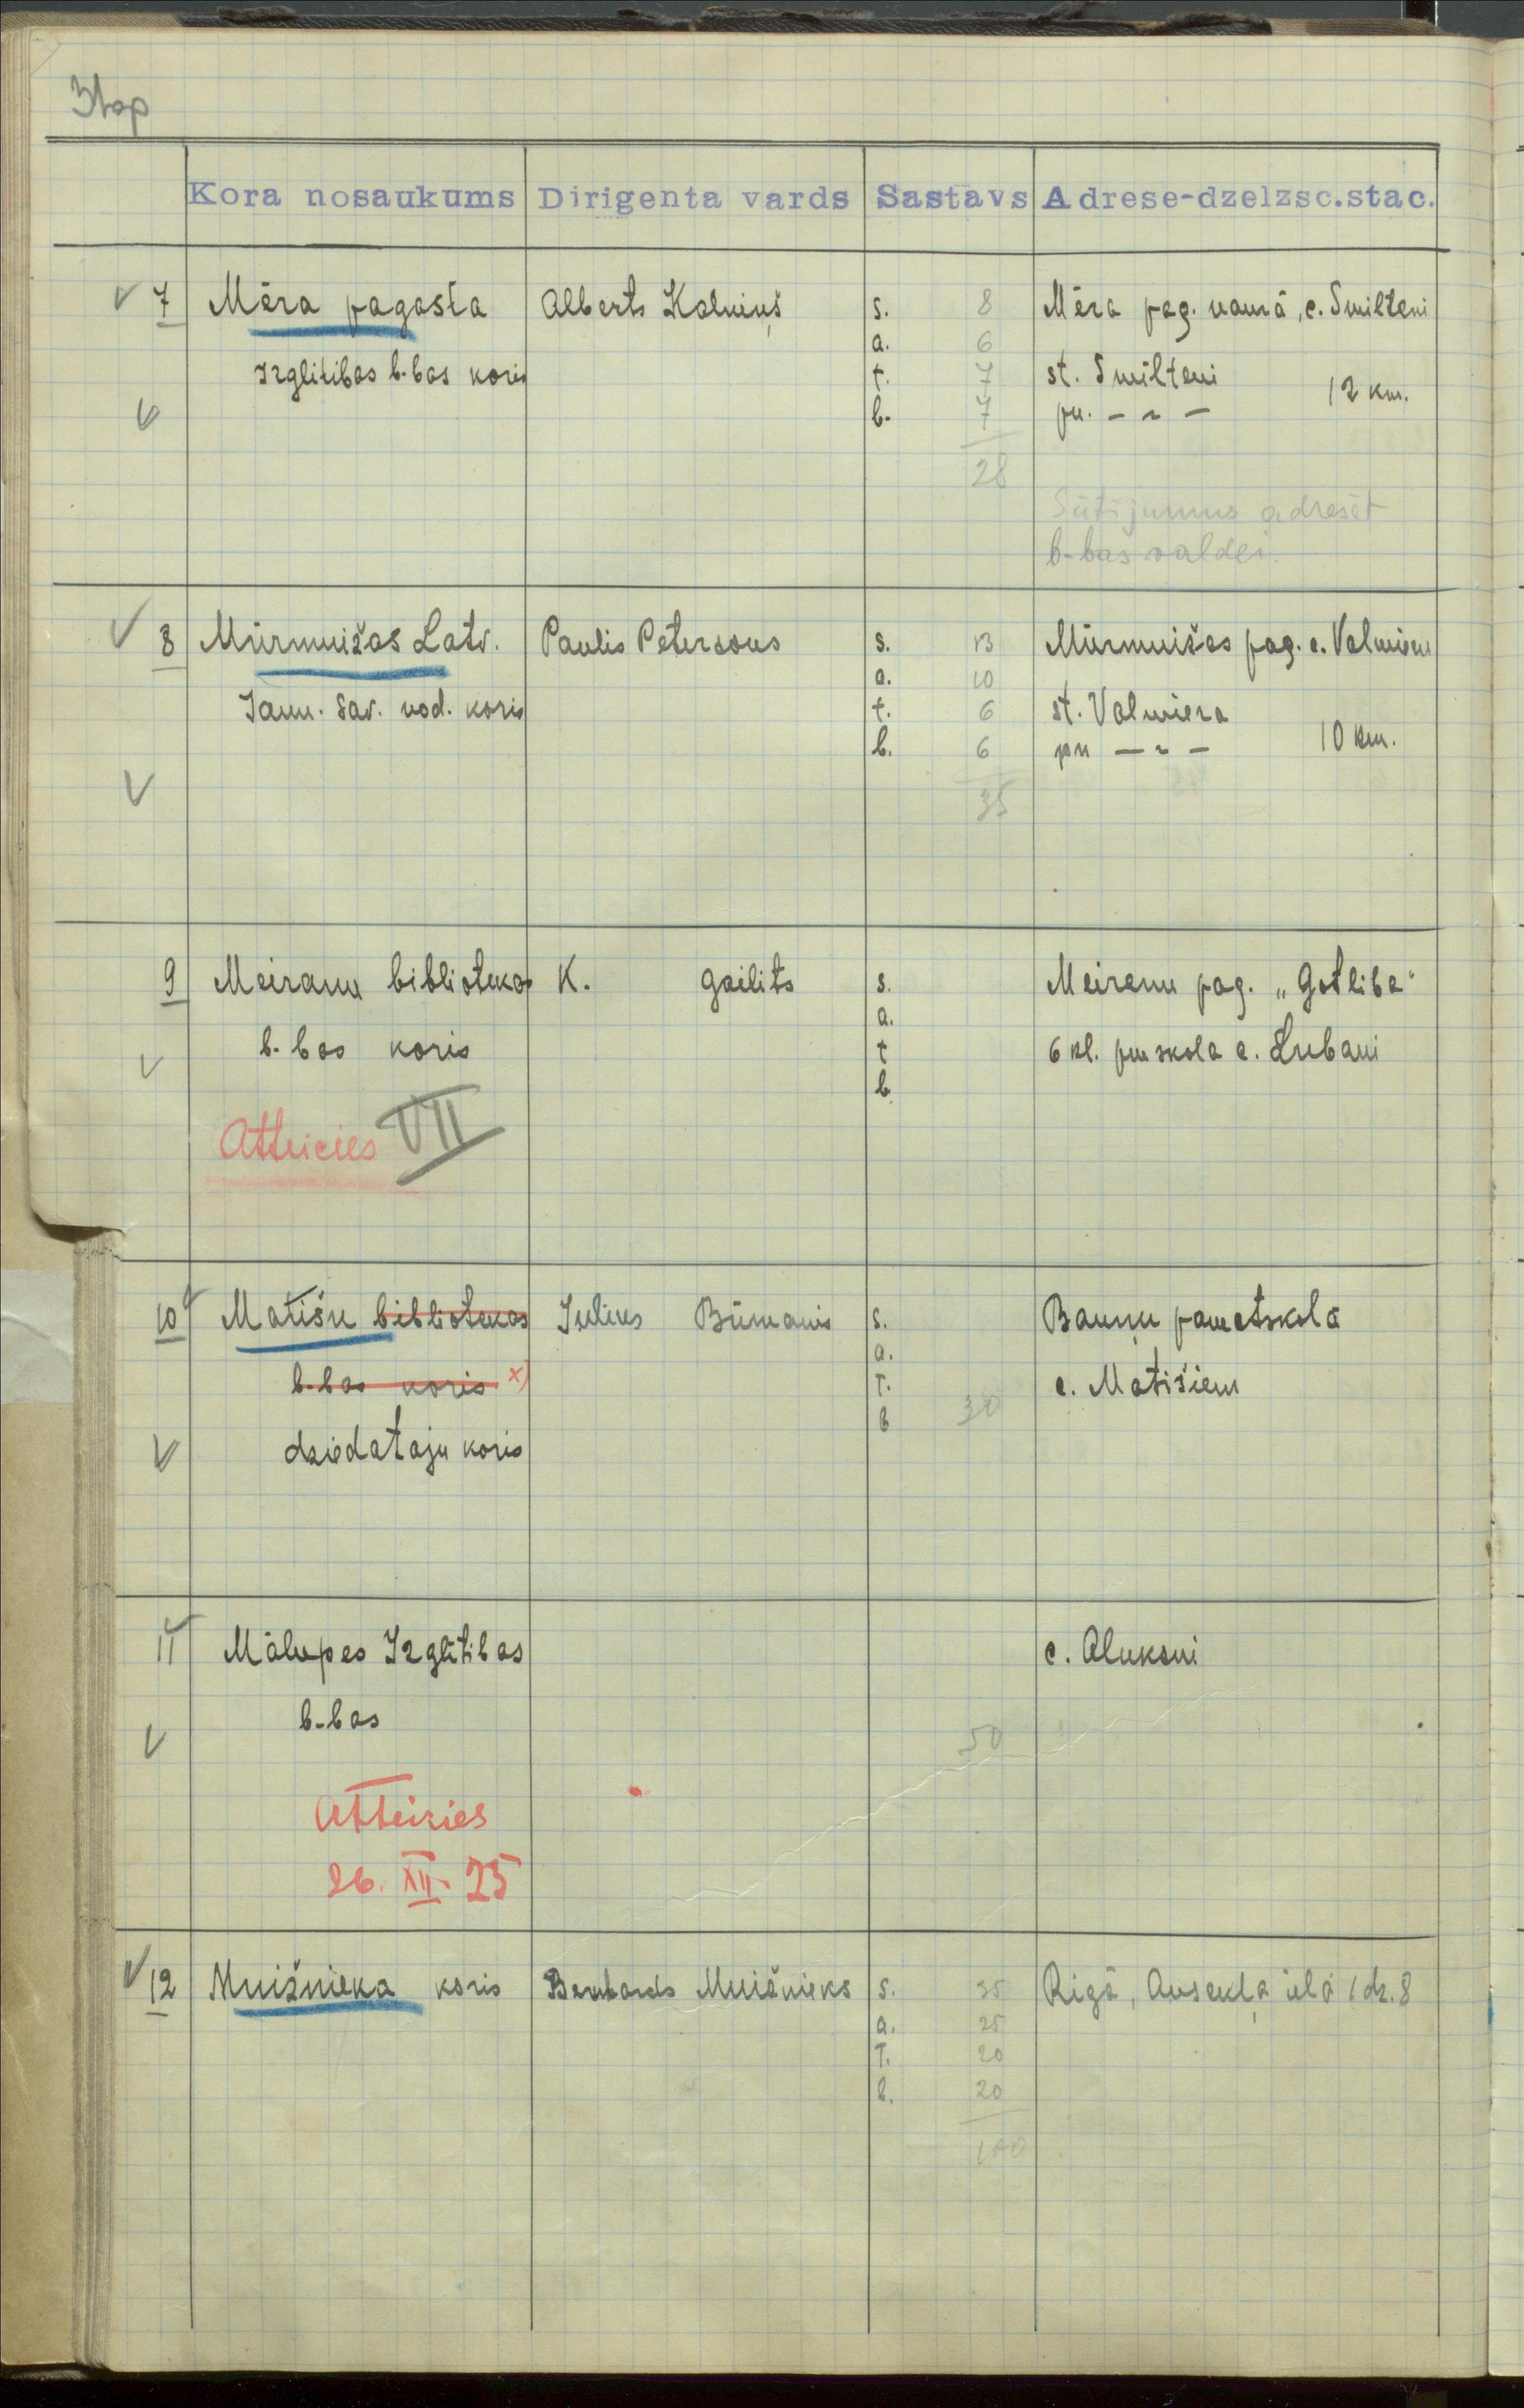 3lap
Kora nosaukums Dirigenta vards Sastavs Adrese-dzelzsc.stac.
7 Mēra pagasta Alberts Kalniņš s. 8 Mēra pag. namā, c. Smilteni
a. 6
Izglitibas b-bas koris t. 7 st. Smilteni 12 km.
b. 7 pn. – „ –
28
Sūtijumus adresēt
b-bas valdei.
8 Mūrmuižas Latv. Paulis Petersons s. 13 Mūrmuižas pag. c. Valmieru
a. 10
Jaun. Sav. nod. koris t. 6 st. Valmiera
b. 6 pn – „ – 10 km.
35
9 Meiranu bibliotekas K. Gailits s. Meiranu pag. „Gotliba"
a.
b-bas koris t 6 kl. pmskola c. Lubani
b.
Atteicies VII
10 Matišu bibliotekas Julius Būmanis s. Bauņu pamatskolā
a.
b-bas koris x) T. c. Matišiem
b 30
dziedataju koris
11 Mālupes Izglītibas c. Aluksni
b-bas
50
Atteicies
26. XII. 25
12 Muižnieka koris Bernhards Muižnieks s. 35 Rigā, Ausekļa ielā 1 dz. 8
a. 25
T. 20
b. 20
100